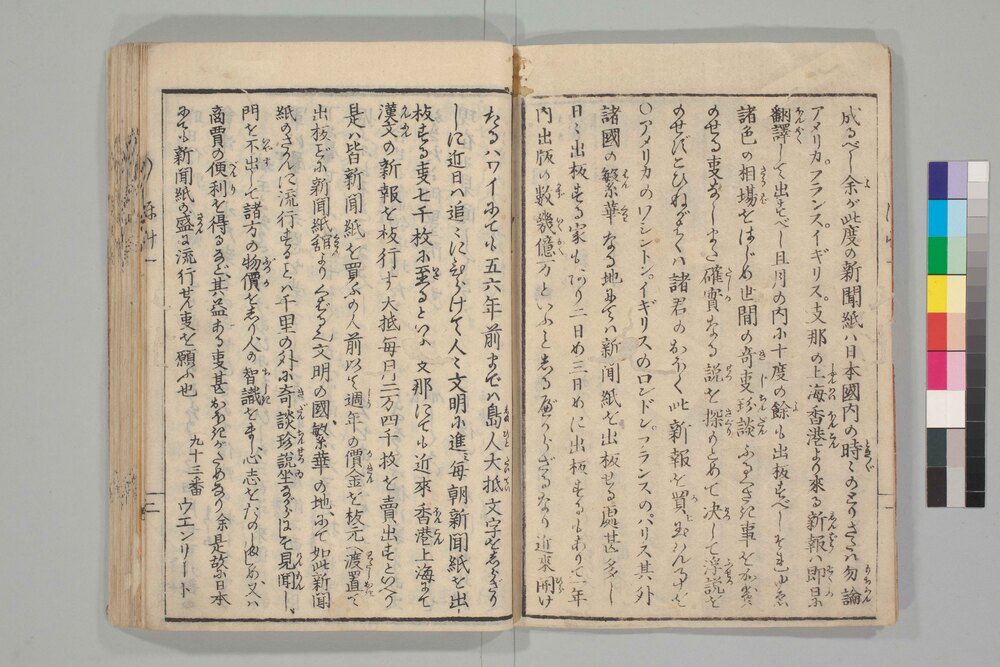 成るべし余が此度の新聞紙ハ日本國内の時々のとりさた勿論
アメリカ。フランス。イギリス。支那の上海香港より來る新報ハ即日に
翻譯して出すべし且月の内に十度の餘も出板すべしそれゆゑ
諸色の相場をはじめ世間の奇事珍談ふるくさき事をかき
のせる事なしまた確實なる説を探りもとめて決して浮説を
のせずこひねがハくハ諸君のおほく此新報を買
〇アメリカのワシントン。イギリスのロンドン。フランスのパリス其外
諸國の繁華なる地にてハ新聞紙を出板せる處甚多し
日々出板する家もあり二日め三日めに出板するもありて一年
内出版の数幾億万といふをしるべからざるなり近來開け
たるハワイにても五六年前までハ島人大抵文字をしらざり
しに近日ハ追々にひらけて人々文明に進ミ毎朝新聞紙を出
板する事七千枚に至るといふ支那にても近來香港上海にて
漢文の新報を板行す大抵毎日二万四千枚を賣出すといへり
是ハ皆新聞紙を買ふの人前以て週年の價金を板元へ渡置て
出板ごとに新聞紙舘よりくばる文明の國繁華の地にて如此新聞
紙のさかんに流行するとハ千里の外の奇談珍説坐ながらにして見聞し
門を不出して諸方の物價をしり人の智識をまし心志をたのしましめ又ハ
商賈の便利を得るなど其益ある事甚おほきがためなり余是故に日本
にても新聞紙の盛に流行せん事を願ふ也
九十三番 ウエンリート